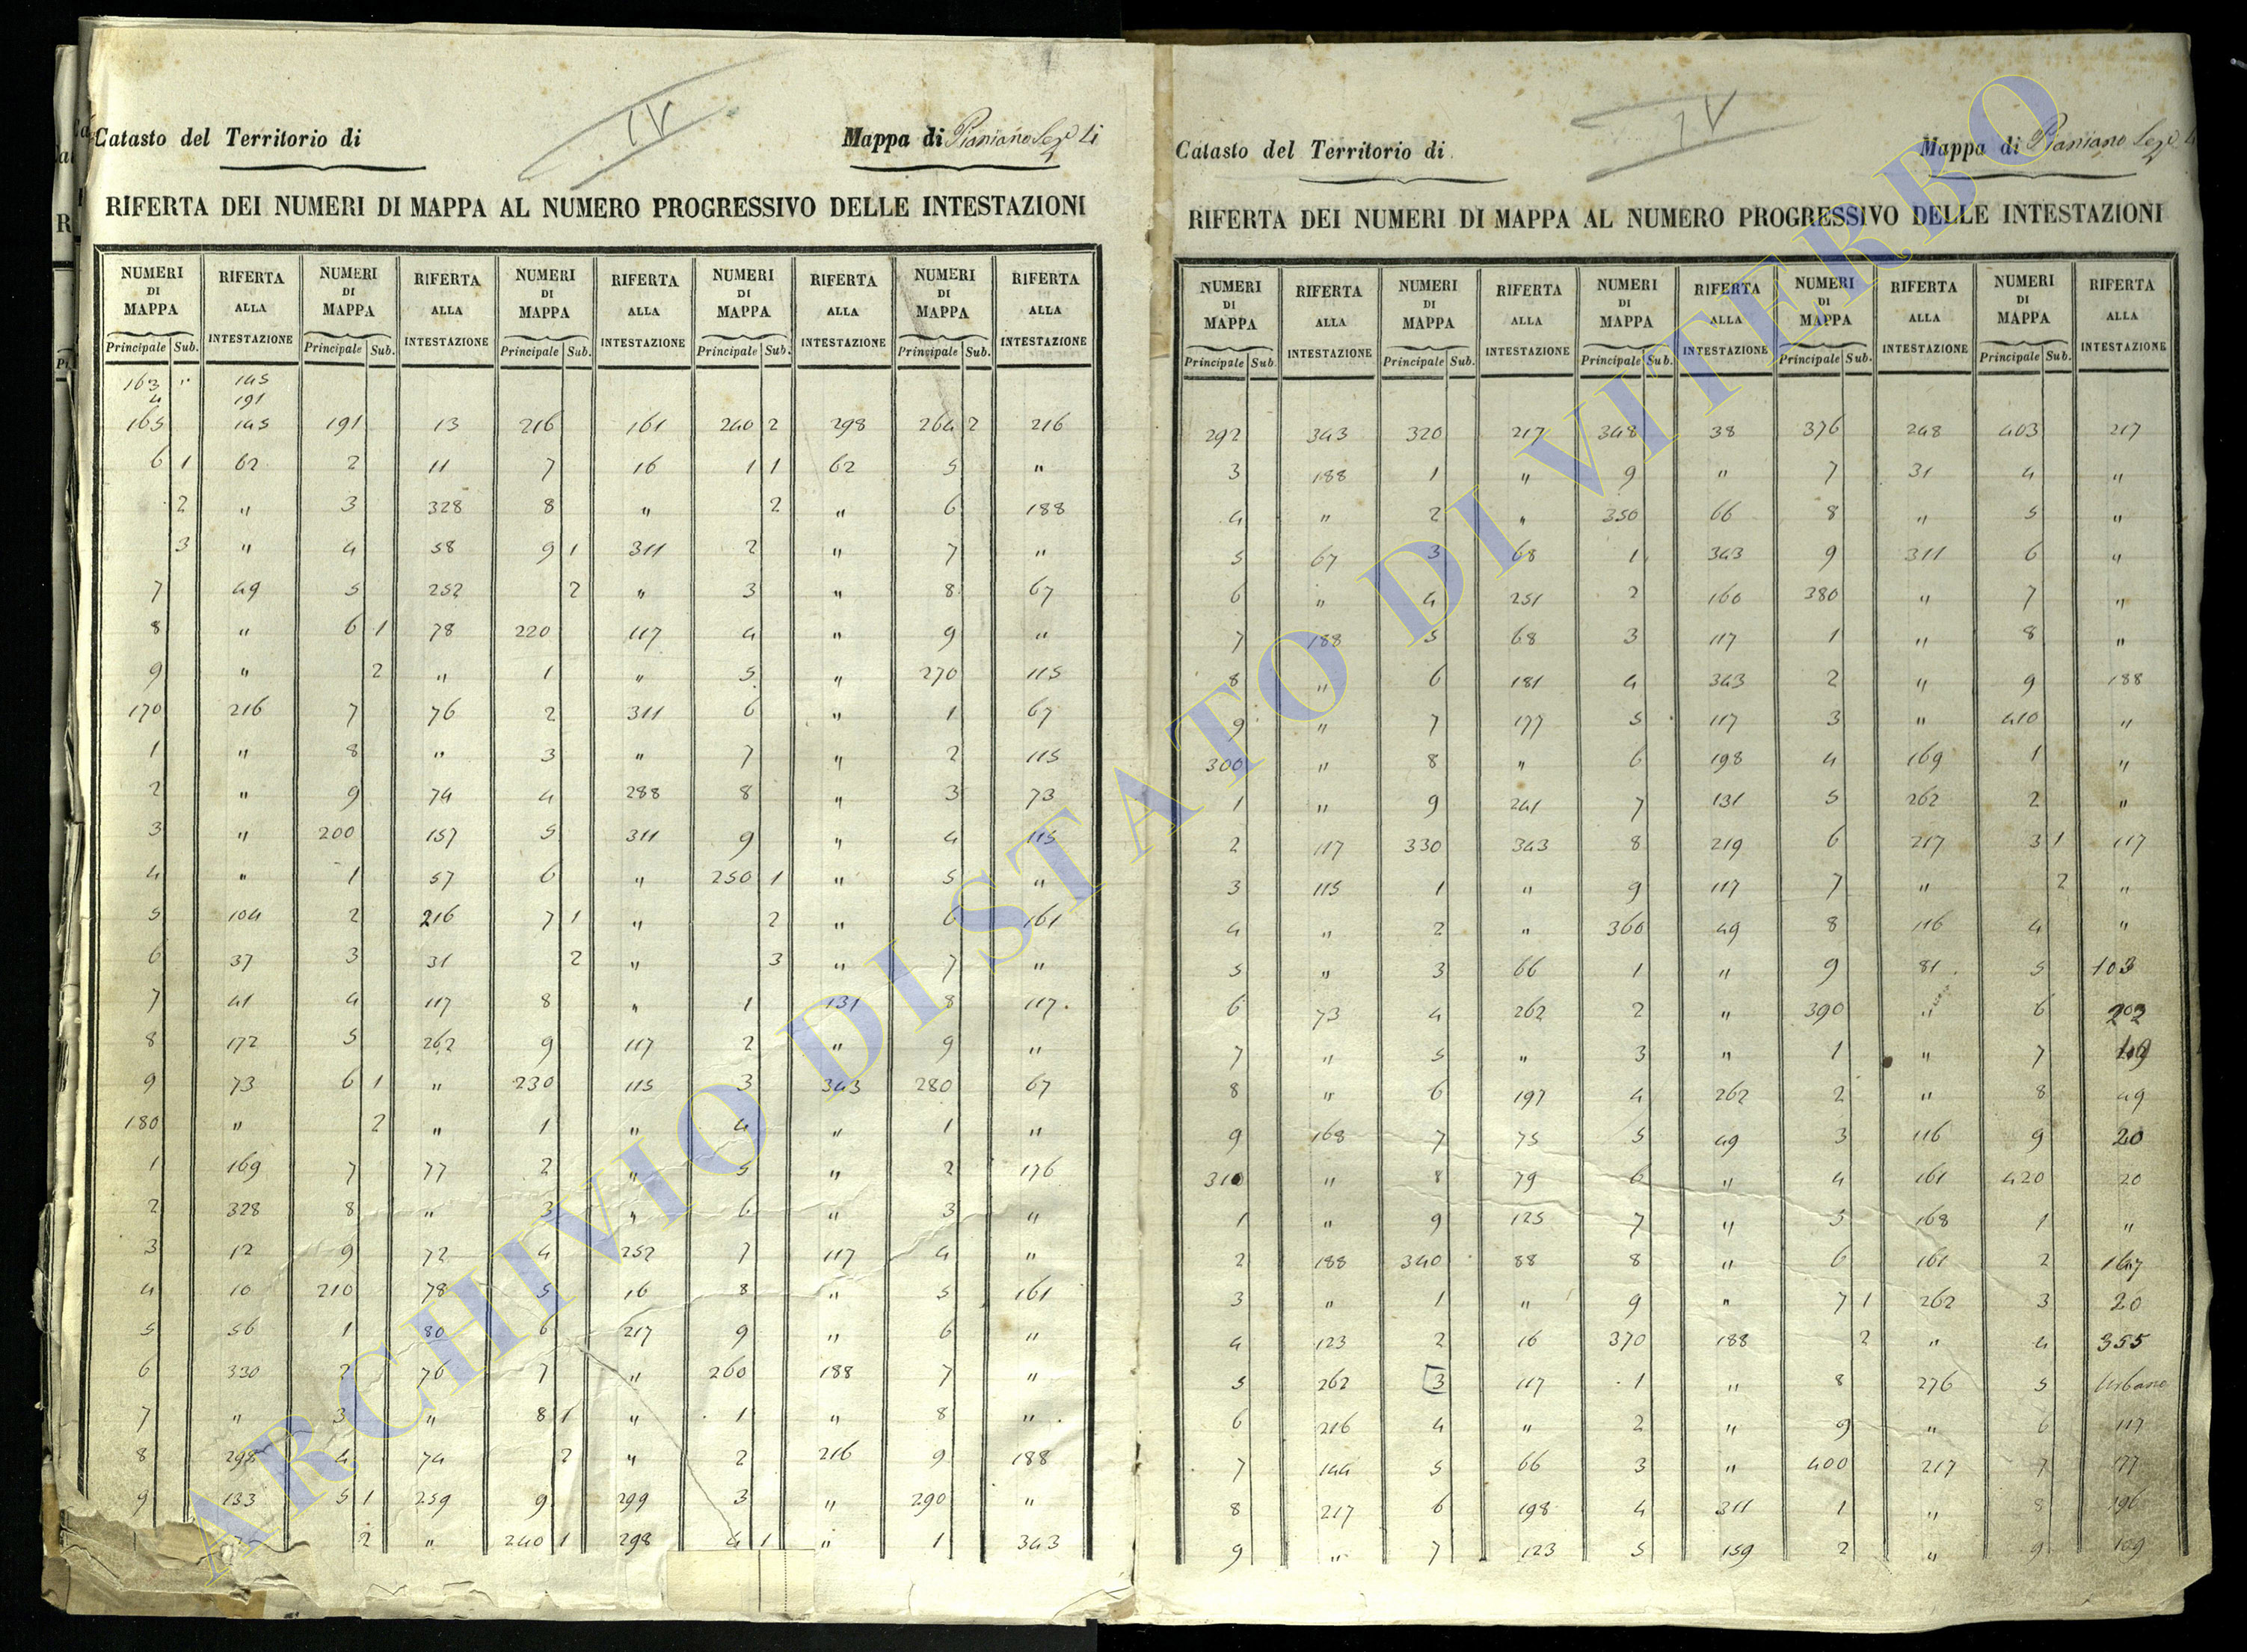 Catasto del Territorio di
IV
Mappa di Pianiano Sez.e 4
RIFERTA DEI NUMERI DI MAPPA AL NUMERO PROGRESSIVO DELLE INTESTAZIONI
NUMERI DI MAPPA RIFERTA ALLA INTESTAZIONE NUMERI DI MAPPA RIFERTA ALLA INTESTAZIONE NUMERI DI MAPPA RIFERTA ALLA INTESTAZIONE NUMERI DI MAPPA RIFERTA ALLA INTESTAZIONE NUMERI DI MAPPA RIFERTA ALLA INTESTAZIONE
Principale Sub. Principale Sub. Principale Sub. Principale Sub. Principale Sub.
163 " 145
4 191
165 145 191 13 216 161 240 2 298 264 2 216
6 1 62 2 11 7 16 1 1 62 5 "
2 " 3 328 8 " 2 " 6 188
3 " 4 58 9 1 311 2 " 7 "
7 49 5 252 2 " 3 " 8 67
8 " 6 1 78 220 117 4 " 9 "
9 " 2 " 1 " 5 " 270 115
170 216 7 76 2 311 6 " 1 67
1 " 8 " 3 " 7 " 2 115
2 " 9 74 4 288 8 " 3 73
3 " 200 157 5 311 9 " 4 115
4 " 1 57 6 " 250 1 " 5 "
5 104 2 216 7 1 " 2 " 6 161
6 37 3 31 2 " 3 " 7 "
7 41 4 117 8 " 1 131 8 117
8 172 5 262 9 117 2 " 9 "
9 73 6 1 " 230 115 3 343 280 67
180 " 2 " 1 " 4 " 1 "
1 169 7 77 2 " 5 " 2 176
2 328 8 " 3 " 6 " 3 "
3 12 9 72 4 252 7 117 4 "
4 10 210 78 5 16 8 " 5 161
5 56 1 80 6 217 9 " 6 "
6 330 2 76 7 " 260 188 7 "
7 " 3 " 8 1 " 1 " 8 "
8 298 4 74 2 " 2 216 9 188
9 133 5 1 259 9 299 3 " 290 "
2 " 240 1 298 4 1 " 1 343
Catasto del Territorio di
IV
Mappa di Pianiano Sez.e 4
RIFERTA DEI NUMERI DI MAPPA AL NUMERO PROGRESSIVO DELLE INTESTAZIONI
NUMERI DI MAPPA RIFERTA ALLA INTESTAZIONE NUMERI DI MAPPA RIFERTA ALLA INTESTAZIONE NUMERI DI MAPPA RIFERTA ALLA INTESTAZIONE NUMERI DI MAPPA RIFERTA ALLA INTESTAZIONE NUMERI DI MAPPA RIFERTA ALLA INTESTAZIONE
Principale Sub. Principale Sub. Principale Sub. Principale Sub. Principale Sub.
292 343 320 217 348 38 376 248 403 217
3 188 1 " 9 " 7 31 4 "
4 " 2 " 350 66 8 " 5 "
5 67 3 68 1 343 9 311 6 "
6 " 4 251 2 160 380 " 7 "
7 188 5 68 3 117 1 " 8 "
8 " 6 181 4 343 2 " 9 188
9 " 7 177 5 117 3 " 410 "
300 " 8 " 6 198 4 169 1 "
1 " 9 241 7 131 5 262 2 "
2 117 330 343 8 219 6 217 3 1 117
3 115 1 " 9 117 7 " 2 "
4 " 2 " 360 49 8 116 4 "
5 " 3 66 1 " 9 81 5 103
6 73 4 262 2 " 390 " 6 202
7 " 5 " 3 " 1 " 7
8 " 6 197 4 262 2 " 8 49
9 168 7 75 5 49 3 116 9 20
310 " 8 79 6 " 4 161 420 20
1 " 9 125 7 " 5 168 1 "
2 188 340 88 8 " 6 161 2
3 " 1 " 9 " 7 1 262 3 20
4 123 2 16 370 188 2 " 4 355
5 262 3 117 1 " 8 276 5 Urbano
6 216 4 " 2 " 9 " 6 117
7 144 5 66 3 " 400 217 7 177
8 217 6 198 4 311 1 " 8 196
9 " 7 123 5 159 2 " 9 169
ARCHIVIO DI STATO DI VITERBO